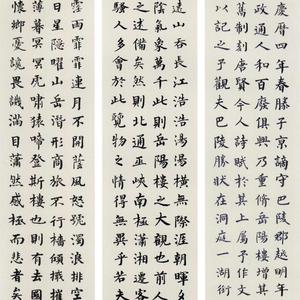 慶曆四年春滕子京謫守巴陵郡越明年
政通人和百廢俱興乃重修岳陽樓增其
舊制刻唐賢今人詩賦於其上屬予作文
以記之予觀夫巴陵勝狀在洞庭一湖銜
遠山吞長江浩浩湯湯橫無際涯朝暉夕
陰氣象萬千此則岳陽樓之大觀也前人
之述備矣然則北通巫峽南極瀟湘遷客
騷人多會於此覽物之情得無異乎若夫
霪雨霏霏連月不開陰風怒號濁浪排空
日星隱曜山岳潛形商旅不行檣傾楫摧
薄暮冥冥虎嘯猿啼登斯樓也則有去國
懷鄉憂讒畏譏滿目蕭然感極而悲者矣